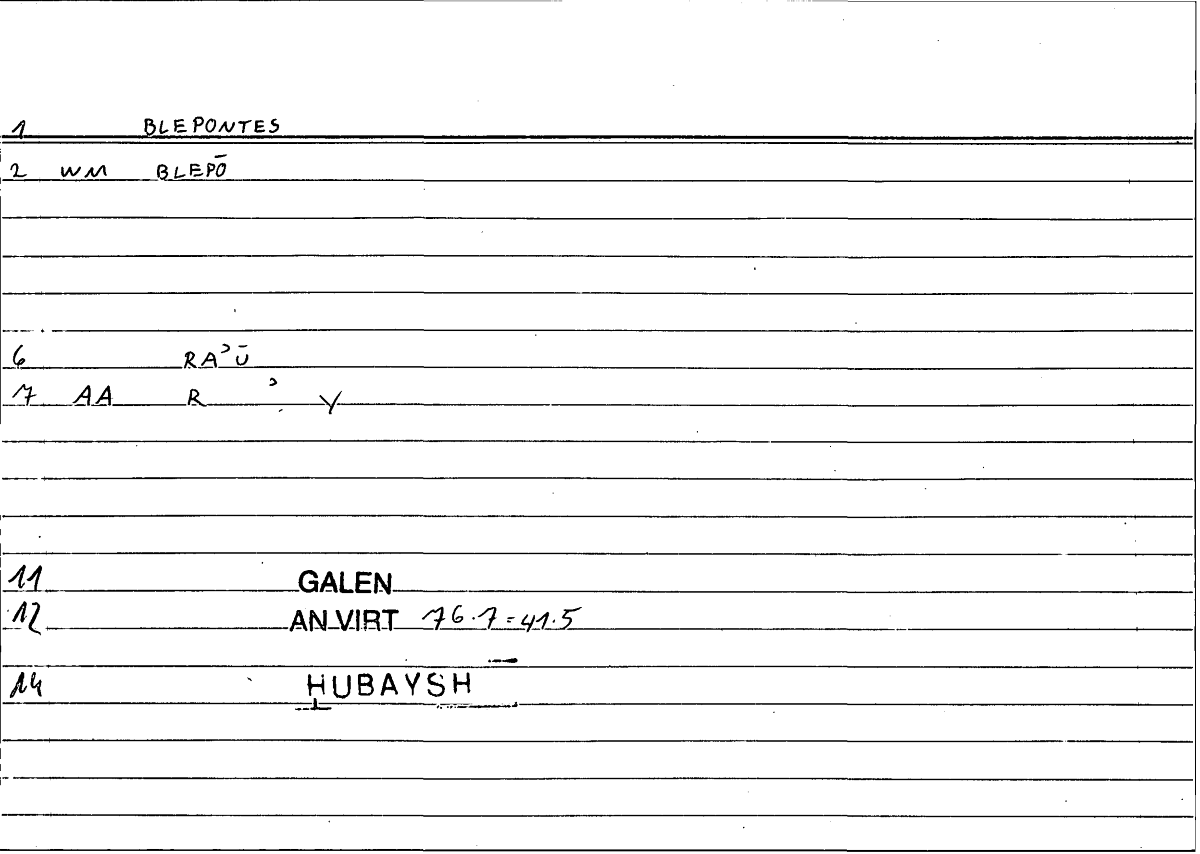 1 BLEPONTES
2 WM BLEPŌ
6 RAʾŪ
7 AA R ʾ Y
11 GALEN
12 AN VIRT 76.7=41.5
14 ḤUBAYSH